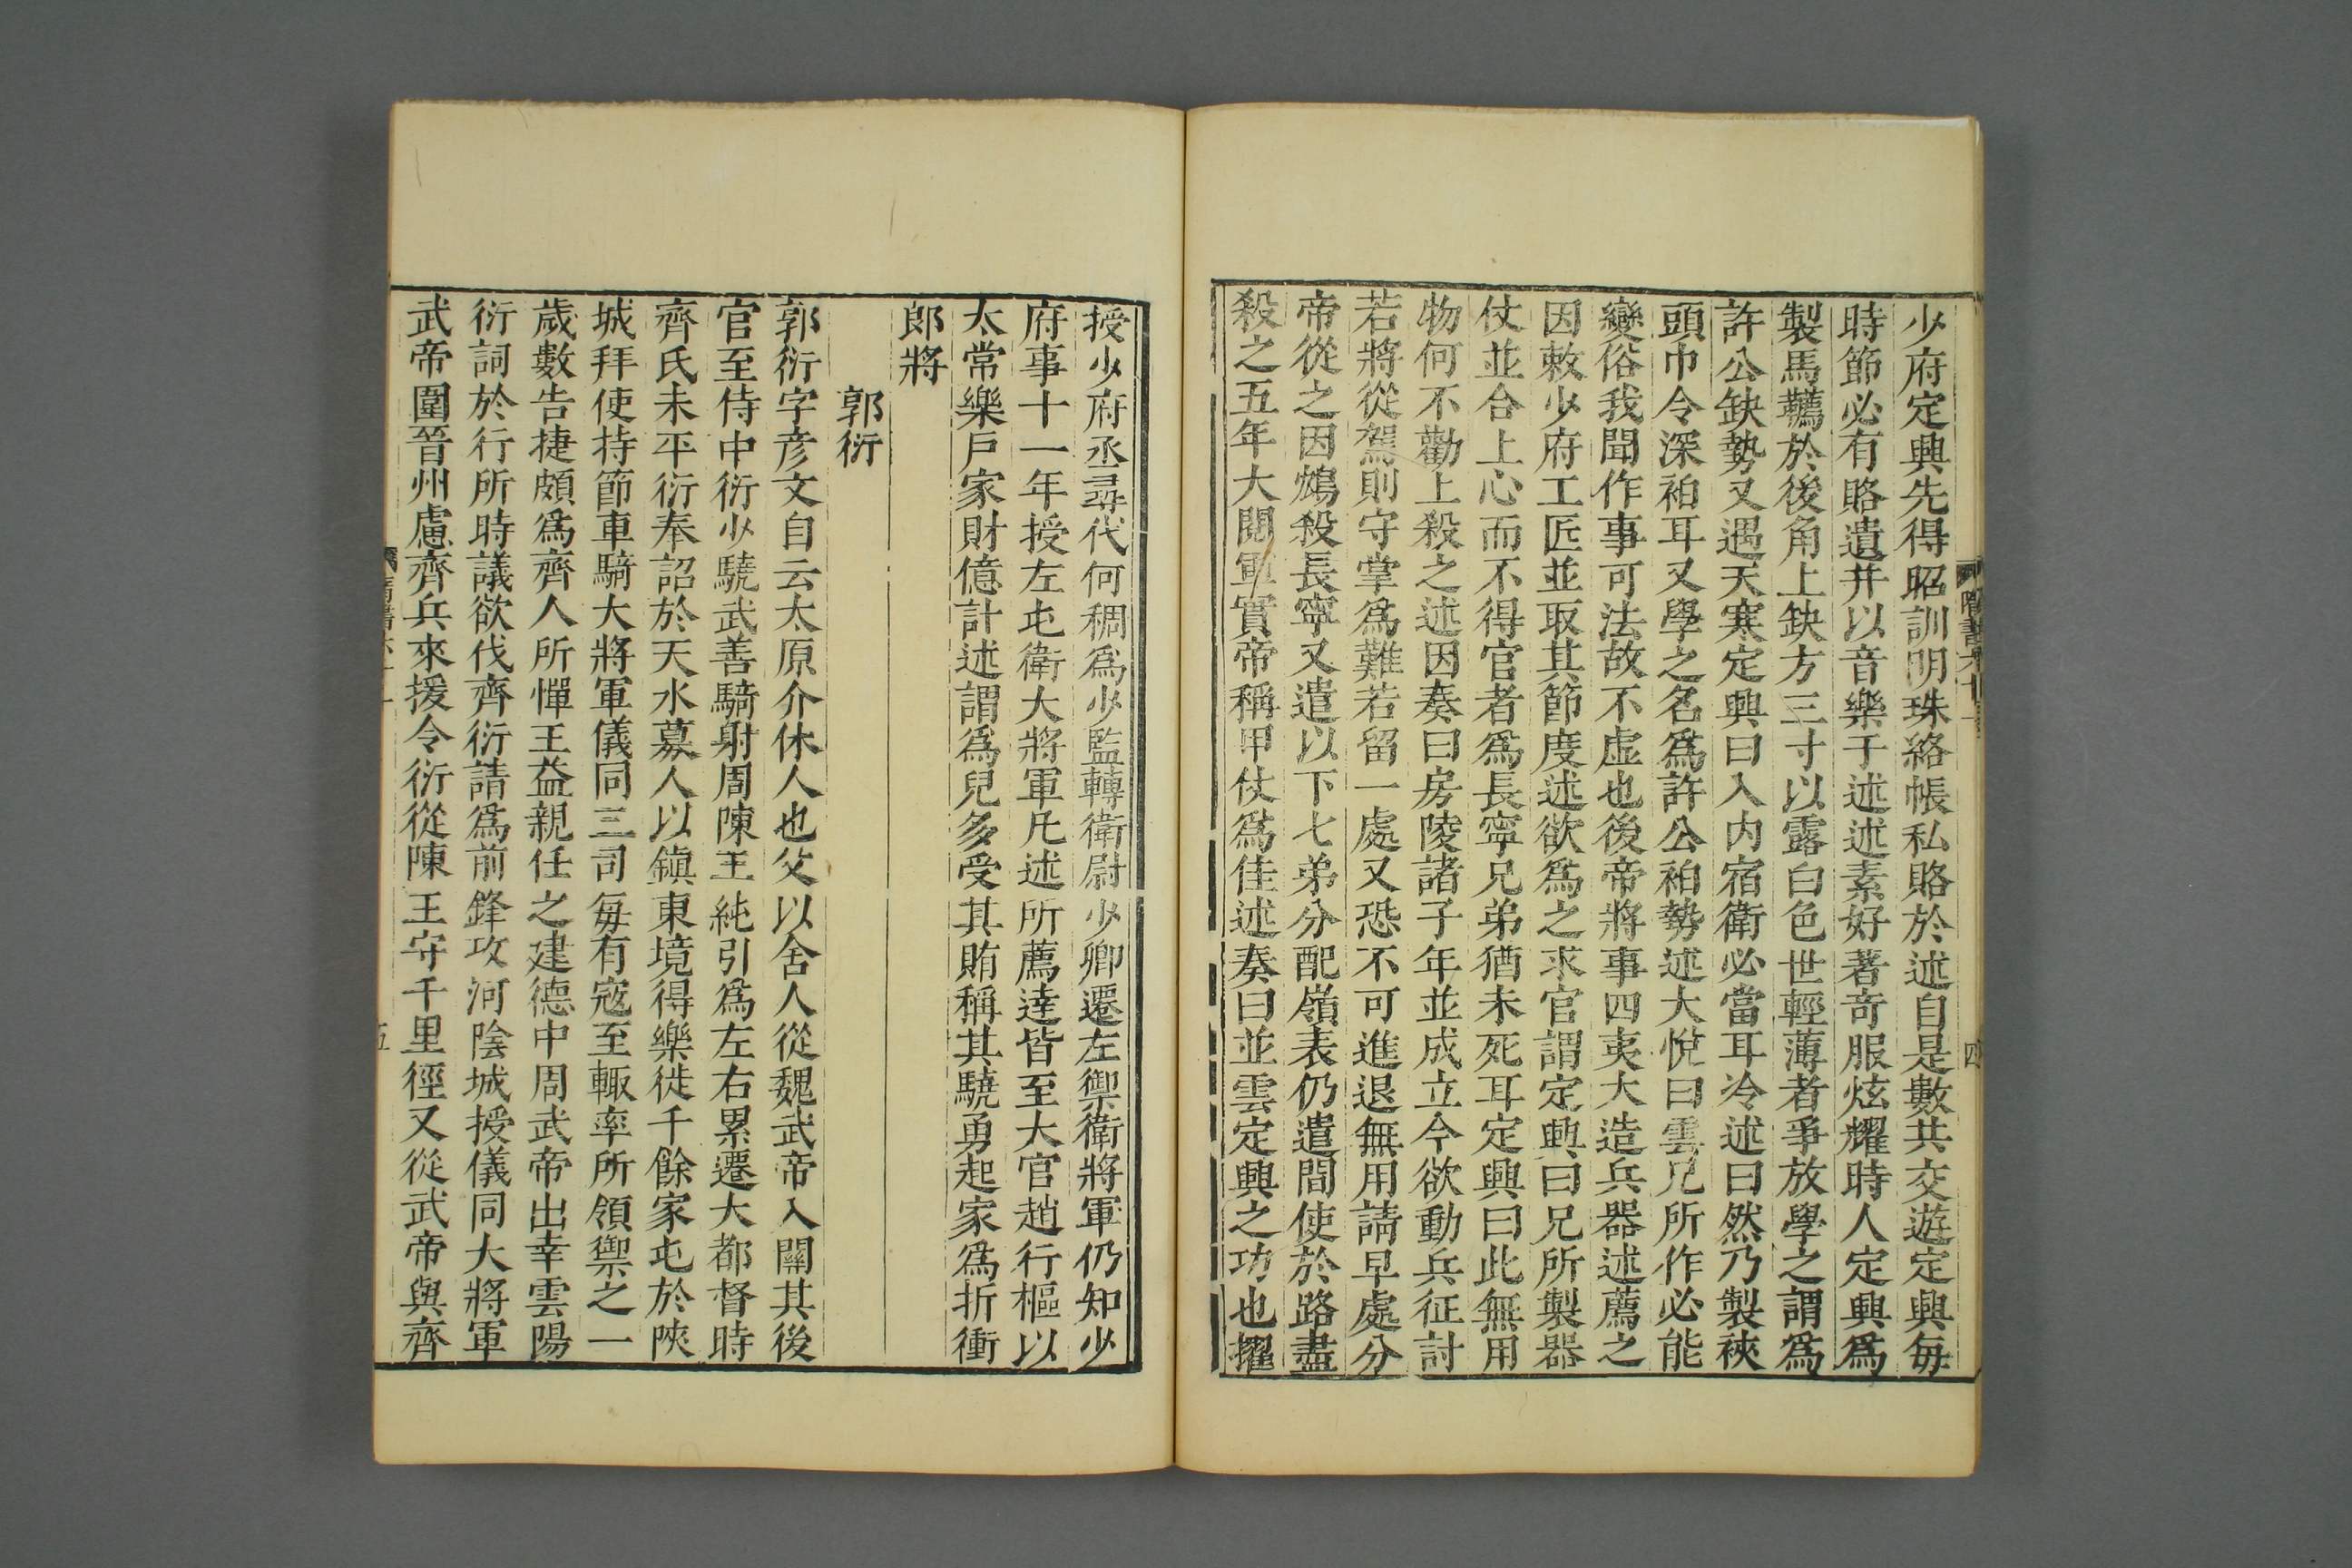 少府定興先得昭訓明珠絡帳私賂於述自是數共交遊定興每
時節必有賂遺并以音樂干述述素好著奇服炫耀時人定興爲
製馬韉於後角上缺方三寸以露白色世輕薄者爭放學之謂爲
許公缺勢又遇天寒定興曰入内宿衛必當耳冷述曰然乃製裌
頭巾令深袙耳又學之名爲許公袙勢述大悅曰雲兄所作必能
變俗我聞作事可法故不虛也後帝將事四夷大造兵器述薦之
因敕少府工匠並取其節度述欲爲之求官謂定興曰兄所製器
仗並合上心而不得官者爲長寧兄弟猶未死耳定興曰此無用
物何不勸上殺之述因奏曰房陵諸子年並成立今欲動兵征討
若將從駕則守掌爲難若留一處又恐不可進退無用請早處分
帝從之因鴆殺長寧又遣以下七弟分配嶺表仍遣間使於路盡
殺之五年大閱軍實帝稱甲仗爲佳述奏曰並雲定興之功也擢
隋書六十一
四
授少府丞尋代何稠爲少監轉衛尉少卿遷左禦衛將軍仍知少
府事十一年授左屯衛大將軍凡述所薦達皆至大官趙行樞以
太常樂戶家財億計述謂爲兒多受其賄稱其驍勇起家爲折衝
郎將
郭衍
郭衍字彦文自云太原介休人也父以舍人從魏武帝入關其後
官至侍中衍少驍武善騎射周陳王純引爲左右累遷大都督時
齊氏未平衍奉詔於天水募人以鎭東境得樂徙千餘家屯於陝
城拜使持節車騎大將軍儀同三司每有寇至輒率所領禦之一
歲數告捷頗爲齊人所憚王益親任之建德中周武帝出幸雲陽
衍詞於行所時議欲伐齊衍請爲前鋒攻河陰城授儀同大將軍
武帝圍晉州慮齊兵來援令衍從陳王守千里徑又從武帝與齊
五